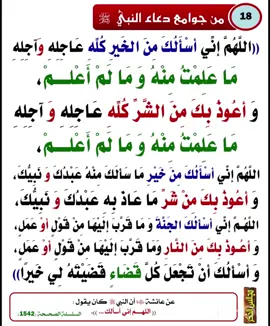 18 من جوامع دعاء النبي ﷺ
((اللَّهُمَّ إِنِّي أَسْأَلُكَ مِنَ الخَيرِ كُلِّه عَاجِلِهِ وَآجِلِهِ
مَا عَلِمْتُ مِنْهُ وَ مَا لَمْ أَعْلَمْ،
وَ أَعُوذُ بِكَ مِنَ الشَّرِّ كُلِّه عَاجِلِهِ وَ آجِلِهِ
مَا عَلِمْتُ مِنْهُ وَ مَا لَمْ أَعْلَمْ،
اللَّهُمَّ إِنِّي أَسَالُكَ مِنْ خَيْرِ مَا سَالَكَ مِنْهُ عَبْدُكَ وَ نَبِيُّكَ،
وَ أَعُوذُ بِكَ مِنْ شَرِّ مَا عاذ بِهِ عَبْدُكَ وَ نَبِيُّكَ،
اللَّهُمَّ إِنِّي أَسَالُكَ الجَنَّةَ وَ مَا قَرَّبَ إِلَيْهَا مِنْ قَوْلٍ أَوْ عَمَلٍ،
وَ أَعُوذُ بِكَ مِنَ النَّارِ وَمَا قَرَّبَ إِلَيْهَا مِنْ قَوْلٍ أَوْ عَمَلٍ،
وَ أَسَالُكَ أَنْ تَجْعَلَ كُلَّ قَضَاءٍ قَضَيْتَهُ لِي خَيراً))
عن عائشة أن النبي ﷺ كان يقول :
(( اللهم إني أسألك ... ))
السلسلة الصحيحة .1542